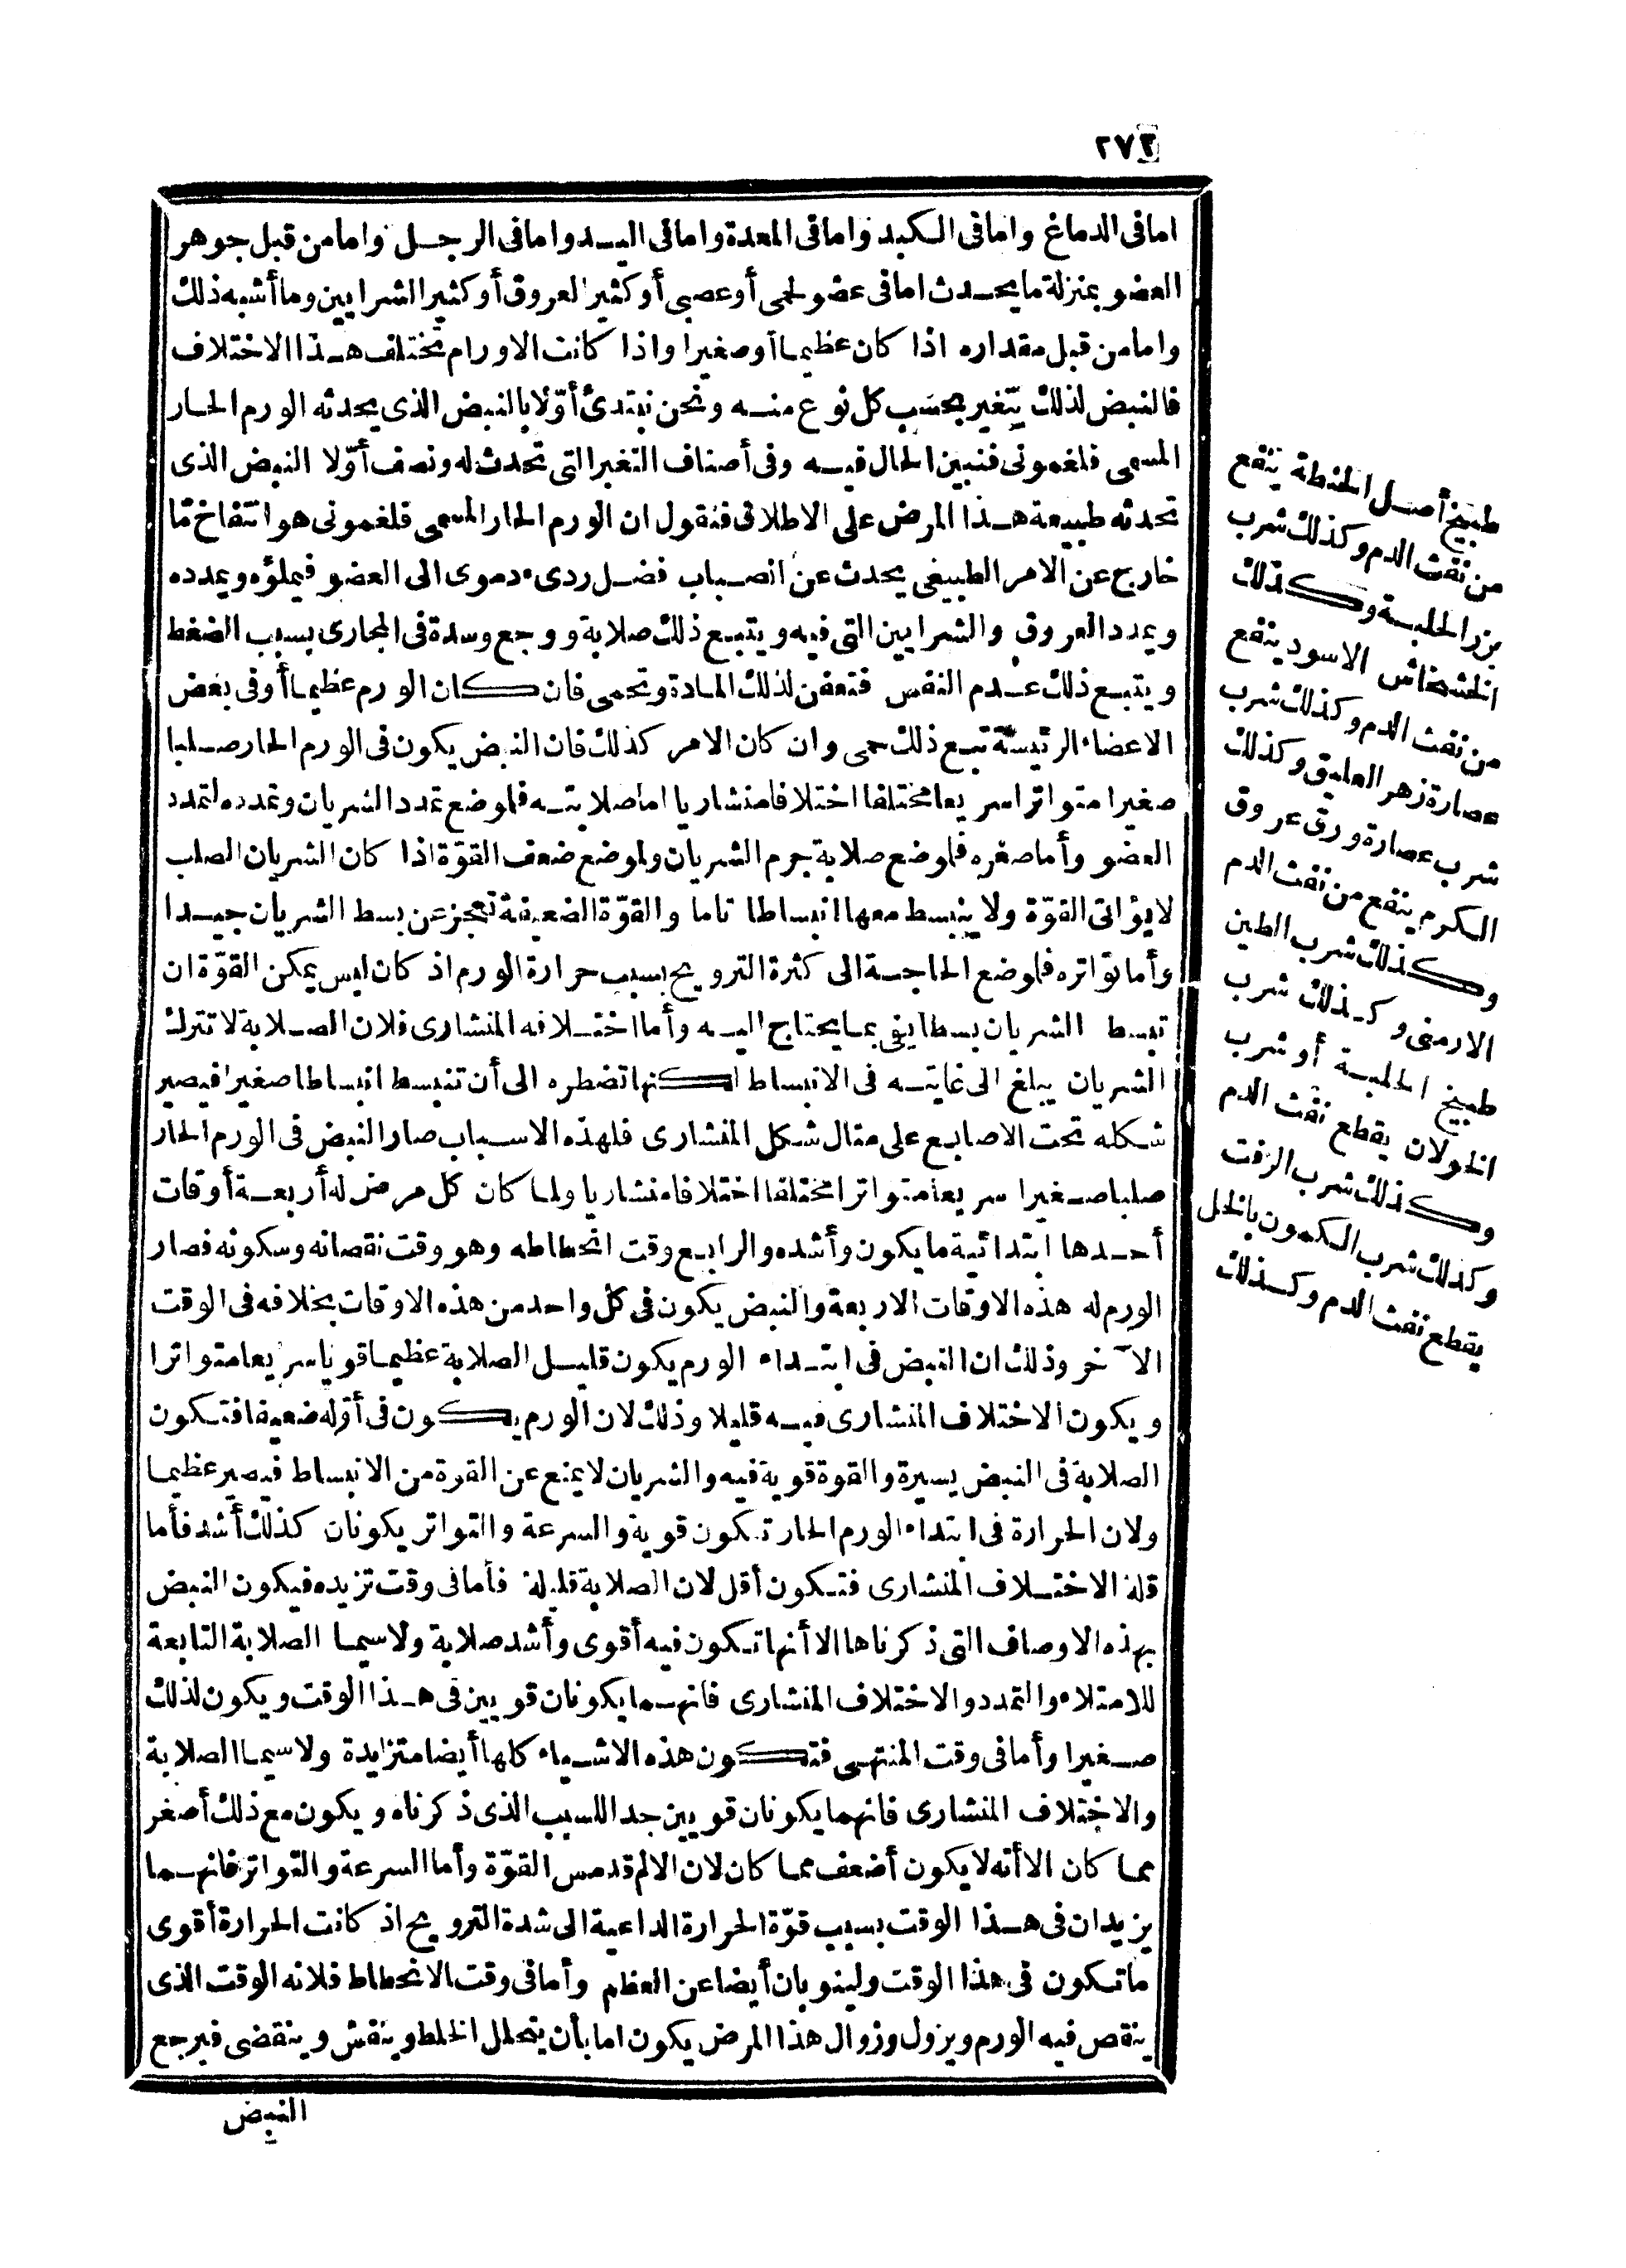 ٢٧٢
اما فى الدماغ واما فى الكبد واما فى المعدة واما فى اليد واما فى الرجل واما من قبل جوهر
العضو بمنزلة ما يحدث اما فى عضو لحمى أو عصبى أو كثير العروق أو كثير الشرايين وما أشبه ذلك
واما من قبل مقداره اذا كان عظيما أو صغيرا واذا كانت الاورام تختلف هذا الاختلاف
فالنبض لذلك يتغير بحسب كل نوع منه ونحن نبتدئ أوّلا بالنبض الذى يحدثه الورم الحار
المسمى فلغمونى فنبين الحال فيه وفى أصناف التغير التى تحدث له ونصف أوّلا النبض الذى
تحدثه طبيعة هذا المرض على الاطلاق فنقول ان الورم الحار المسمى فلغمونى هو انتفاخ ما
خارج عن الامر الطبيعى يحدث عن انصباب فضل ردىء دموى الى العضو فيملؤه ويمدده
ويمدد العروق والشرايين التى فيه ويتبع ذلك صلابة ووجع وسدة فى المجارى بسبب الضغط
ويتبع ذلك عدم النفس فتعفن لذلك المادة وتحمى فان كان الورم عظيما أو فى بعض
الاعضاء الرئيسة تبع ذلك حمى وان كان الامر كذلك فان النبض يكون فى الورم الحار صلبا
صغيرا متواترا سريعا مختلفا اختلافا منشاريا اما صلابته فلموضع تمدد الشريان وتمدده لتمدد
العضو وأما صغره فلموضع صلابة جرم الشريان ولموضع ضعف القوّة اذا كان الشريان الصلب
لا يؤاتى القوّة ولا ينبسط معها انبساطا تاما والقوّة الضعيفة تعجز عن بسط الشريان جيدا
وأما تواتره فلموضع الحاجة الى كثرة الترويح بسبب حرارة الورم اذ كان ليس يمكن القوّة ان
تبسط الشريان بسطا يفى بما يحتاج اليه وأما اختلافه المنشارى فلان الصلابة لا تترك
الشريان يبلغ الى غايته فى الانبساط لكنها تضطره الى أن تنبسط انبساطا صغيرا فيصير
شكله تحت الاصابع على مثال شكل المنشارى فلهذه الاسباب صار النبض فى الورم الحار
صلبا صغيرا سريعا متواترا مختلفا اختلافا منشاريا ولما كان كل مرض له أربعة أوقات
أحدها ابتدائية ما يكون وأشده والرابع وقت انحطاطه وهو وقت نقصانه وسكونه فصار
الورم له هذه الاوقات الاربعة والنبض يكون فى كل واحد من هذه الاوقات بخلافه فى الوقت
الآخر وذلك ان النبض فى ابتداء الورم يكون قليل الصلابة عظيما قويا سريعا متواترا
ويكون الاختلاف المنشارى فيه قليلا وذلك لان الورم يكون فى أوّله ضعيفا فتكون
الصلابة فى النبض يسيرة والقوة قوية فيه والشريان لا يمنع عن القوة من الانبساط فيصير عظيما
ولان الحرارة فى ابتداء الورم الحار تكون قوية والسرعة والتواتر يكونان كذلك أشد فأما
قلة الاختلاف المنشارى فتكون أقل لان الصلابة قليلة فأما فى وقت تزيده فيكون النبض
بهذه الاوصاف التى ذكرناها الا أنها تكون فيه أقوى وأشد صلابة ولا سيما الصلابة التابعة
للامتلاء والتمدد والاختلاف المنشارى فانهما يكونان قويين فى هذا الوقت ويكون لذلك
صغيرا وأما فى وقت المنتهى فتكون هذه الاشياء كلها أيضا متزايدة ولا سيما الصلابة
والاختلاف المنشارى فانهما يكونان قويين جدا للسبب الذى ذكرناه ويكون مع ذلك أصغر
مما كان الا أنه لا يكون أضعف مما كان لان الالم قد مس القوّة وأما السرعة والتواتر فانهما
يزيدان فى هذا الوقت بسبب قوّة الحرارة الداعية الى شدة الترويح اذ كانت الحرارة أقوى
ما تكون فى هذا الوقت ولينوبان أيضا عن العظم وأما فى وقت الانحطاط فلانه الوقت الذى
ينقص فيه الورم ويزول وزوال هذا المرض يكون اما بأن يتحلل الخلط وينفش وينقضى فيرجع
النبض
طبيخ أصل الحنطة ينفع
من نفث الدم وكذلك شرب
بزر الحلبة وكذلك
الخشخاش الاسود ينفع
من نفث الدم وكذلك شرب
عصارة زهر العليق وكذلك
شرب عصارة ورق عروق
الكرم ينفع من نفث الدم
وكذلك شرب الطين
الارمنى وكذلك شرب
طبيخ الحلبة أو شرب
الخولان يقطع نفث الدم
وكذلك شرب الزفت
وكذلك شرب الكمون بالخل
يقطع نفث الدم وكذلك